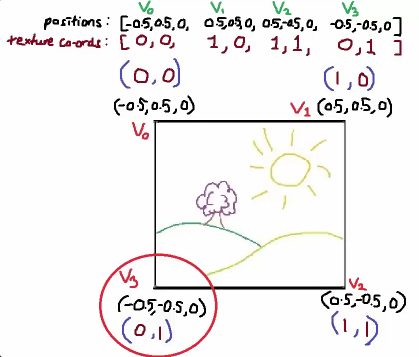 V0 V1 V2 V3
positions: [-0.5,0.5,0, 0.5,0.5,0, 0.5,-0.5,0, -0.5,-0.5,0]
texture co-ords: [ 0,0, 1,0, 1,1, 0,1 ]
(0,0) (1,0)
(-0.5,0.5,0) V1 (0.5,0.5,0)
V0
V3 V2
(-0.5,-0.5,0) (0.5,-0.5,0)
(0,1) (1,1)